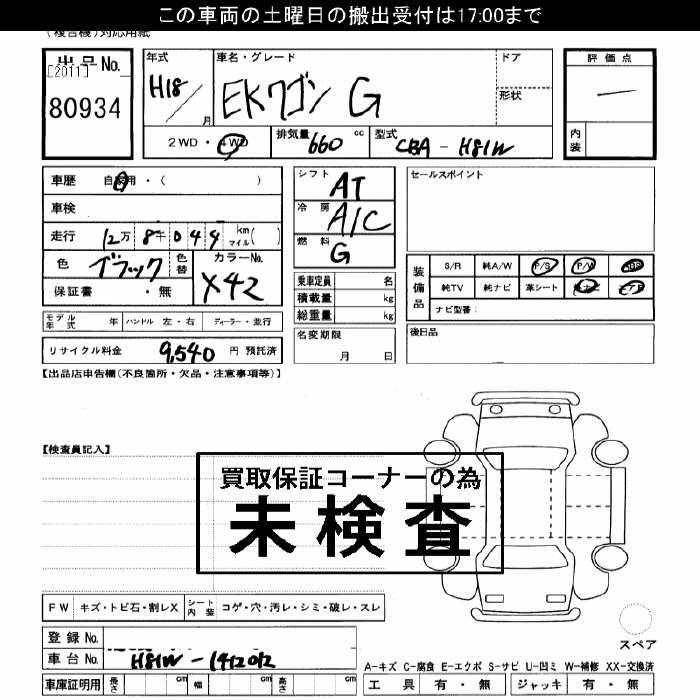 この車両の土曜日の搬出受付は17:00まで
(複合機)対応用紙
出品No.
[2011]
80934
年式
H18/
月
車名・グレード
EKワゴン G
ドア
形状
評価点
—
内装
2WD・4WD
排気量 660 cc
型式 CBA-H81W
車歴 自家用・( )
車検
走行 12万 8千 0 4 4 km マイル( )
色 ブラック 色替
カラーNo.
X42
保証書 ・無
シフト AT
冷房 A/C
燃料 G
乗車定員 名
積載量 kg
総重量 kg
セールスポイント
装備品
S/R 純A/W P/S P/W
純TV 純ナビ 革シート
ナビ型番:
モデル年式 年 ハンドル 左・右 ディーラー・並行
リサイクル料金 9,540 円 預託済
名変期限
月 日
後日品
【出品店申告欄(不良箇所・欠品・注意事項等)】
【検査員記入】
買取保証コーナーの為
未検査
FW キズ・トビ石・割レX シート内装 コゲ・穴・汚レ・シミ・破レ・スレ
登録No.
車台No. H81W-1412012
車庫証明用 長さ cm 幅 cm 高さ cm
スペア
A-キズ C-腐食 E-エクボ S-サビ U-凹ミ W-補修 XX-交換済
工具 有・無 ジャッキ 有・無